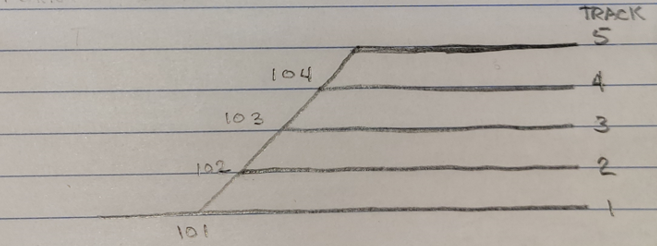 TRACK
5
104 4
103 3
102 2
1
101